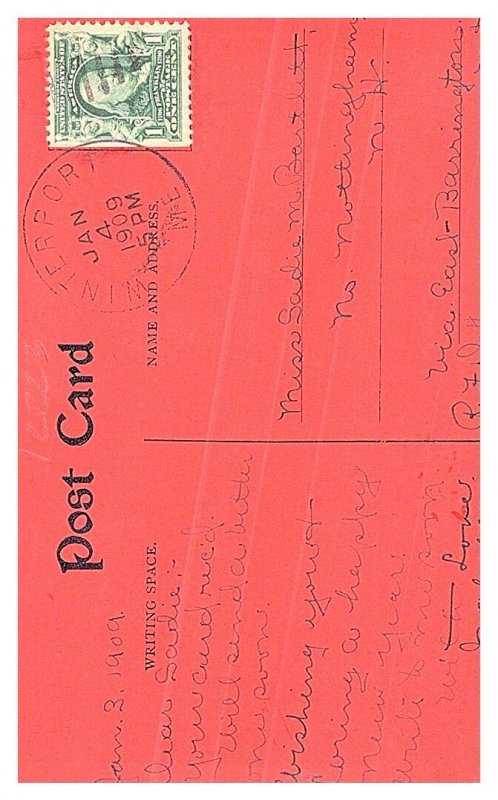 Post Card
WRITING SPACE.
NAME AND ADDRESS.
WINTERPORT
ME.
JAN
4
5 PM
1909
1
1
Jan. 3, 1909.
Dear Sadie:-
Your card recd.
Will send a letter
soon.
Wishing you
a happy
New Year.
Write soon.
With Love.
Miss Sadie M. Bartlett,
No. Nottingham
N. H.
Via East Barrington.
R. F. D.